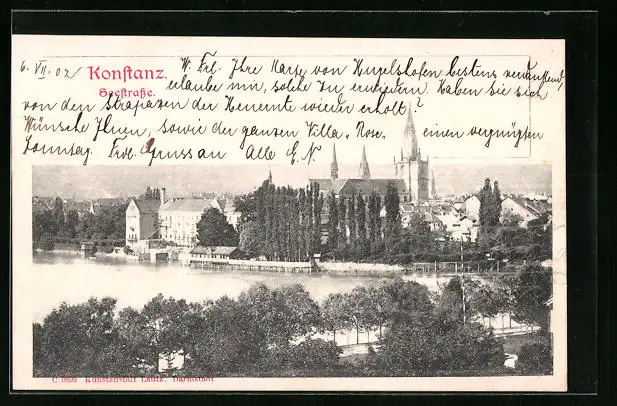 6. VII. 02
Konstanz.
Seestraße.
W. Frl. Ihre Karte von Hugelshofen bestens verdankend,
erlaube mir, solche zu erwiedern. Haben Sie sich
von den Strapazen der Heuernte wieder erholt?
Wünsche Ihnen, sowie der ganzen Villa „Rosa" einen vergnügten
Sonntag. Frdl. Gruss an Alle E. N.
C 9899 Kunstanstalt Lautz. Darmstadt